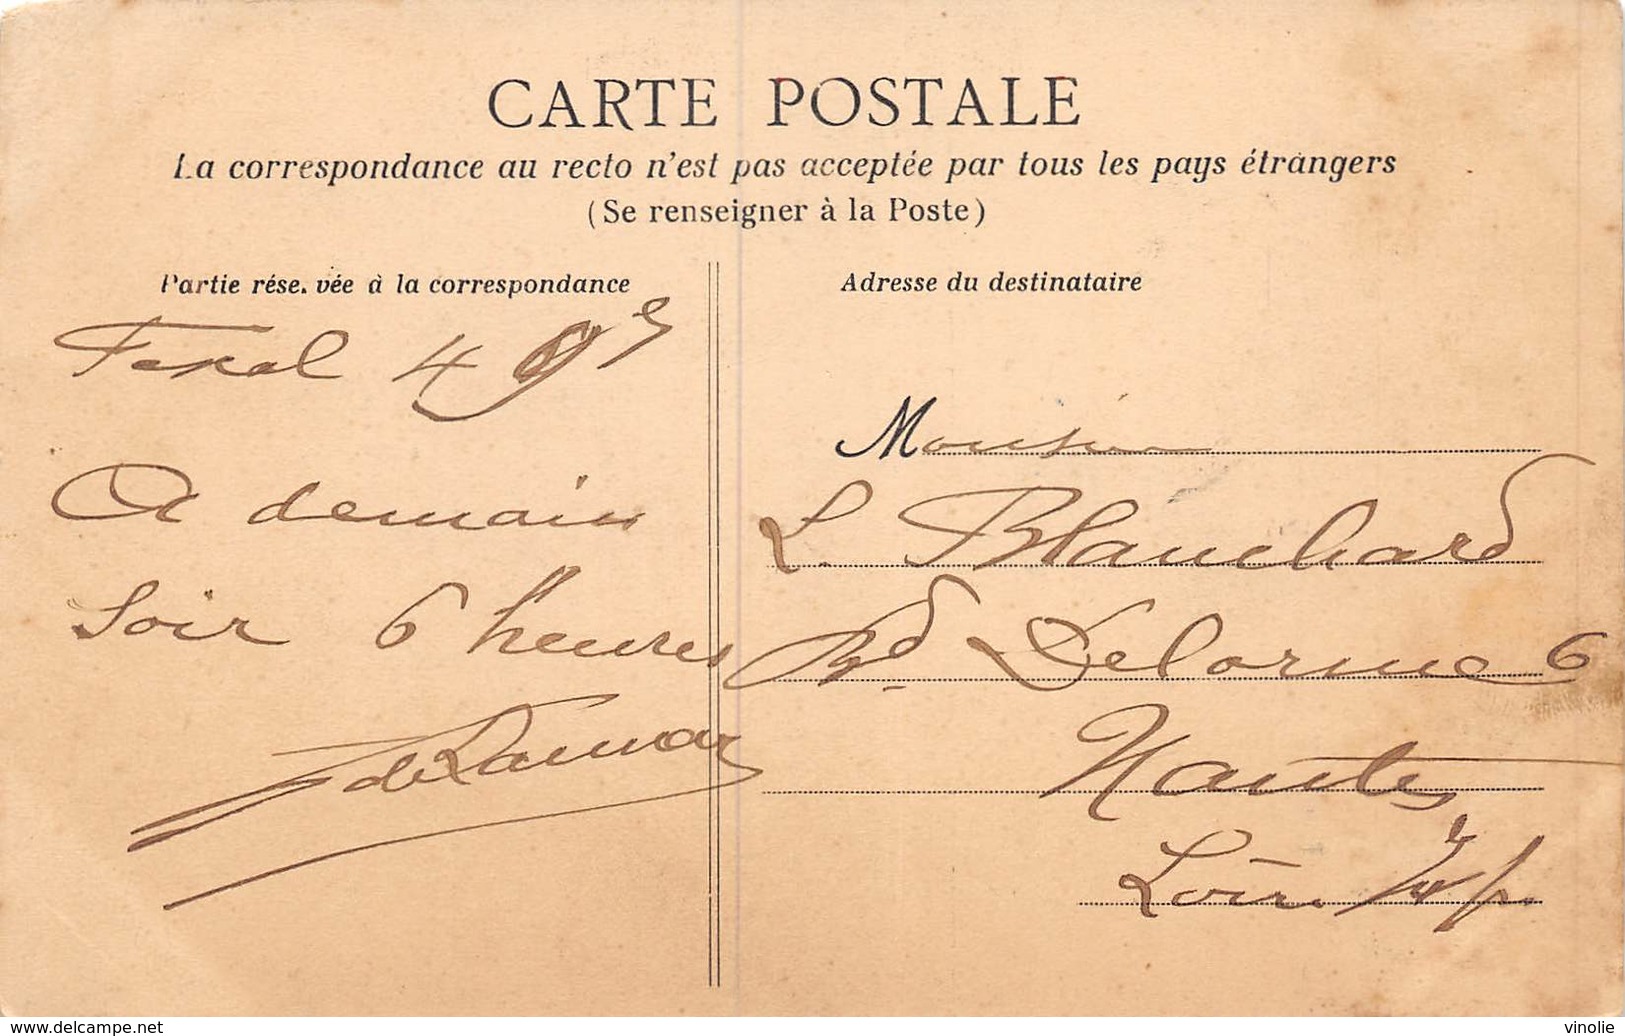 CARTE POSTALE
La correspondance au recto n'est pas acceptée par tous les pays étrangers
(Se renseigner à la Poste)
Partie réservée à la correspondance
4
A demain
Soir 6 heures
Adresse du destinataire
Monsieur
L. Blanchard
Bd Delorme 6
Nantes
Loire Infre
www.delcampe.net
vinolie